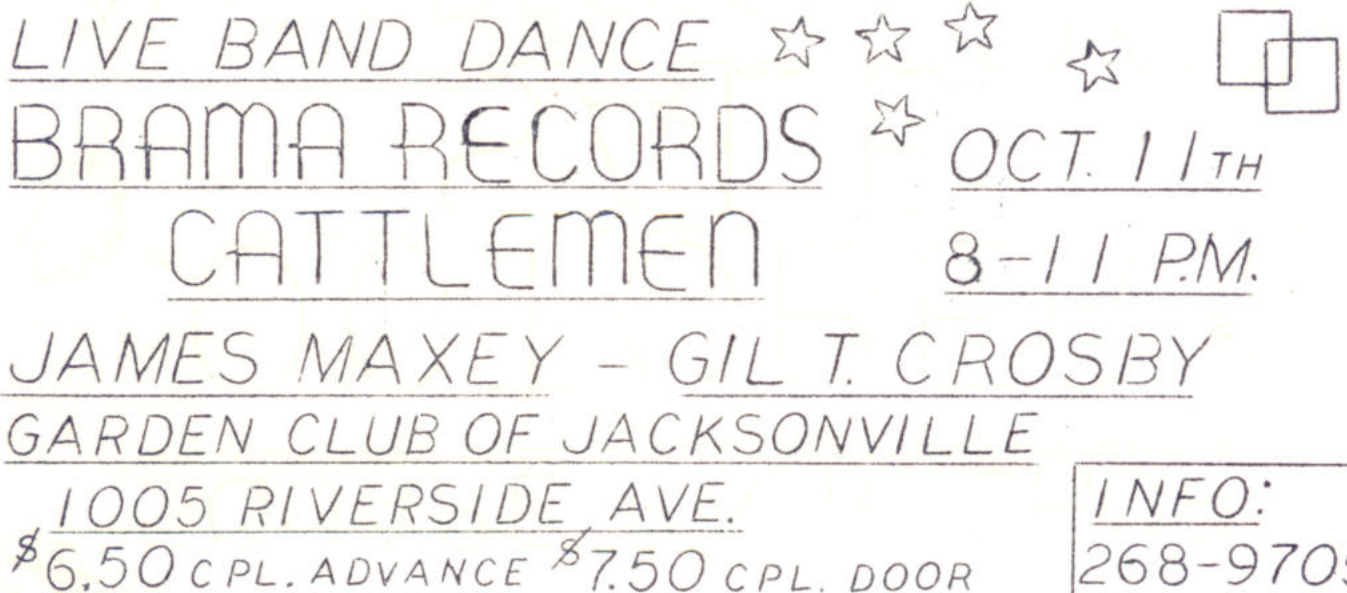 LIVE BAND DANCE
BRAMA RECORDS
OCT. 11TH
CATTLEMEN
8-11 P.M.
JAMES MAXEY - GIL T. CROSBY
GARDEN CLUB OF JACKSONVILLE
1005 RIVERSIDE AVE.
$6.50 CPL. ADVANCE $7.50 CPL. DOOR
INFO:
268-9705